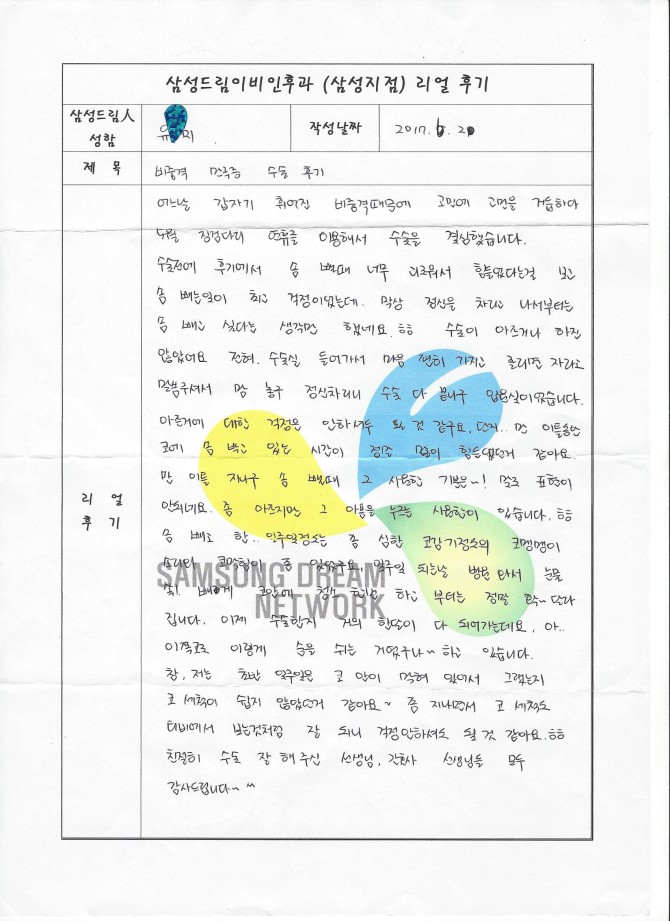 삼성드림이비인후과 (삼성지점) 리얼 후기
삼성드림人 성함
유 리
작성날짜
2017. 6. 20
제 목
비중격 만곡증 수술 후기
리 얼 후 기
어느날 갑자기 휘어진 비중격때문에 고민에 고민을 거듭하다
4월 징검다리 연휴를 이용해서 수술을 결심했습니다.
수술전에 후기에서 솜 뺄때 너무 괴로워서 힘들었다는걸 보고
솜 빼는것이 최고 걱정이었는데. 막상 정신을 차리고 나서부터는
솜 빼고 싶다는 생각만 했네요.ㅎㅎ 수술이 아프거나 하진
않았어요 전혀. 수술실 들어가서 마음 편히 가지고 졸리면 자라고
말씀주셔서 맘 놓구 정신차리니 수술 다 끝나구 입원실이었습니다.
아픈거에 대한 걱정은 안하셔두 될 것 같구요, 단지.. 만 이틀동안
코에 솜 박고 있는 시간이 정말 많이 힘들었던거 같아요.
만 이틀 지나구 솜 뺄때 그 시원한 기분은~! 말로 표현이
안되네요. 좀 아프지만 그 아픔을 누르는 시원함이 있습니다.ㅎㅎ
솜 빼고 한.. 일주일정도는 좀 심한 코감기정도의 코맹맹이
소리와 코막힘이 좀 있었구요, 일주일 되는날 병원 와서 눈물
쏙 빼게 코안에 청소 한번 하고 부터는 정말 한층~ 달라
집니다. 이제 수술한지 거의 한달이 다 되어가는데요, 아..
이쪽코로 이렇게 숨을 쉬는 거였구나~ 하고 있습니다.
참, 저는 초반 일주일은 코 안이 막혀 있어서 그랬는지
코 세척이 쉽지 않았던거 같아요~ 좀 지나면서 코 세척도
티비에서 보는것처럼 잘 되니 걱정안하셔도 될 것 같아요.ㅎㅎ
친절히 수술 잘 해 주신 선생님, 간호사 선생님들 모두
감사드립니다~ ^^
SAMSONG DREAM
NETWORK